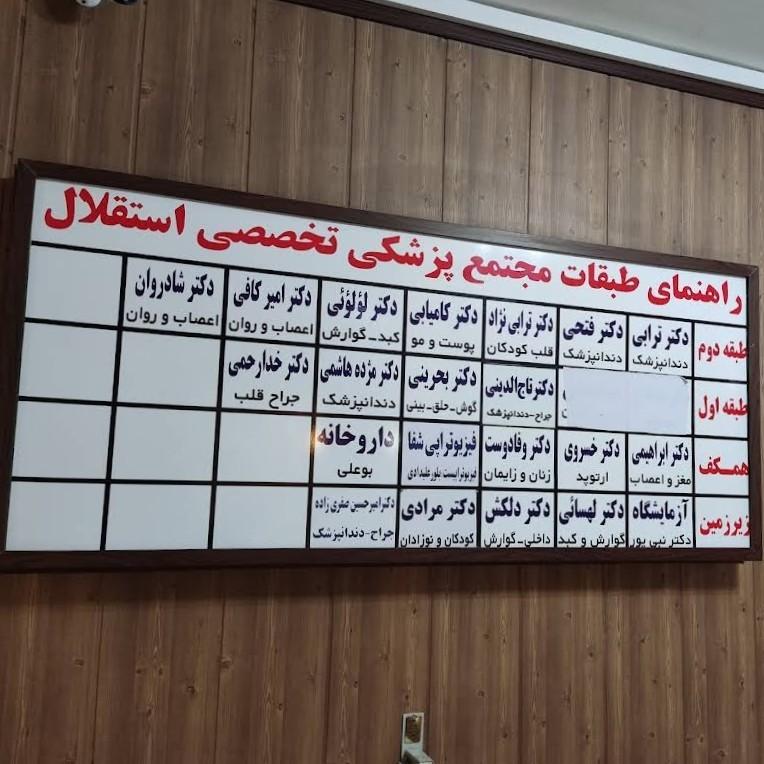 راهنمای طبقات مجتمع پزشکی تخصصی استقلال
طبقه دوم
دکتر ترابی
دندانپزشک
دکتر فتحی
دندانپزشک
دکتر ترابی نژاد
قلب کودکان
دکتر کامیابی
پوست و مو
دکتر لؤلؤئی
کبد-گوارش
دکتر امیر کافی
اعصاب و روان
دکتر شادروان
اعصاب و روان
طبقه اول
دکتر تاج‌الدینی
جراح-دندانپزشک
دکتر بحرینی
گوش-حلق-بینی
دکتر مژده هاشمی
دندانپزشک
دکتر خدارحمی
جراح قلب
همکف
دکتر ابراهیمی
مغز و اعصاب
دکتر خسروی
ارتوپد
دکتر وفادوست
زنان و زایمان
فیزیوتراپی شفا
فیزیوتراپیست بلور علیدادی
داروخانه
بوعلی
زیرزمین
آزمایشگاه
دکتر نبی پور
دکتر لهسائی
گوارش و کبد
دکتر دلکش
داخلی-گوارش
دکتر مرادی
کودکان و نوزادان
دکتر امیرحسین صفری زاده
جراح-دندانپزشک